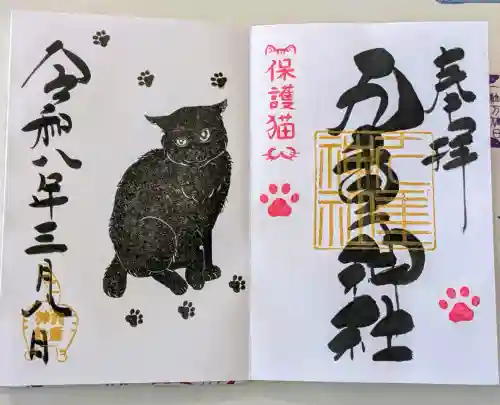 奉拝
九重神社
保護猫
令和八年三月八日